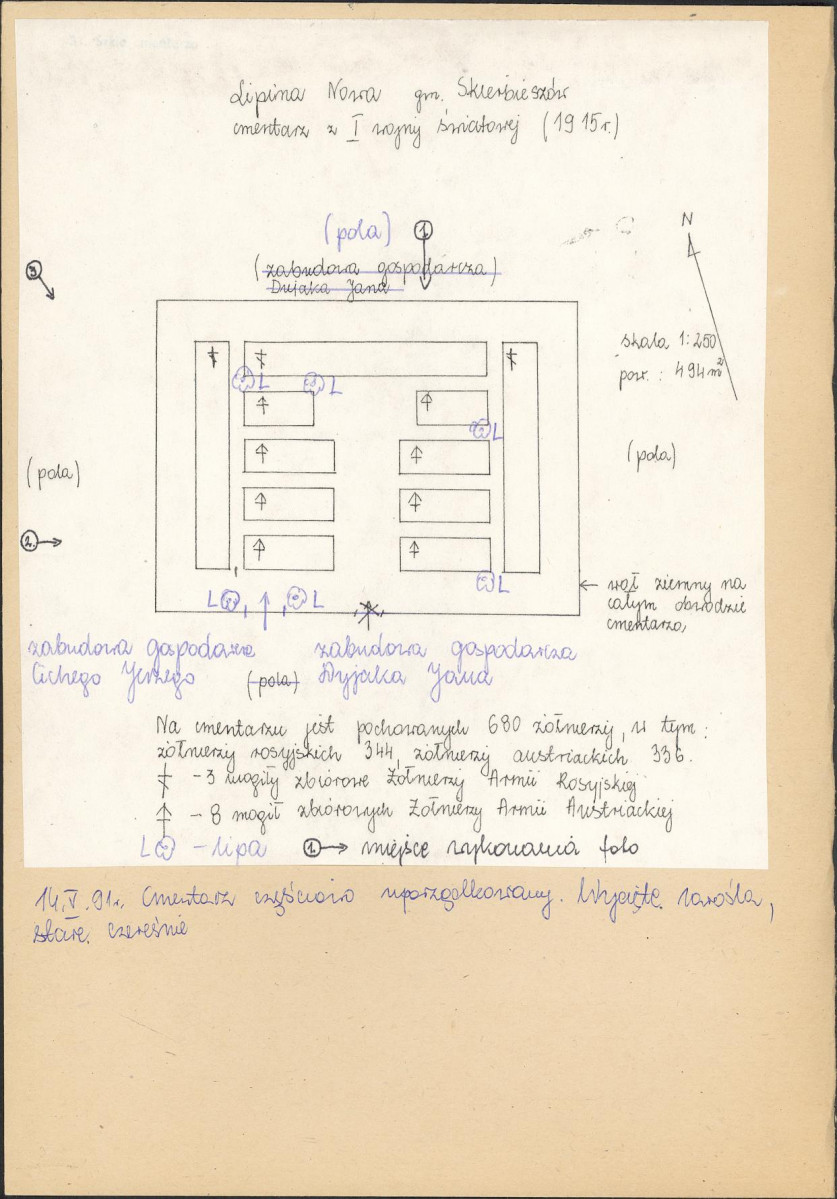 Lipina Nowa gm. Skierbieszów
cmentarz z I wojny światowej (1915r.)
(pola)
1.
N
(zabudowa gospodarcza)
Dujaka Jana
3
skala 1:250
pow. : 494 m²
L
L
L
(pola)
(pola)
2.
L
L
L
wał ziemny na
całym obwodzie
cmentarza,
zabudowa gospodarcze zabudowa gospodarcza
Cichego Jerzego (pola) Dyjaka Jana
Na cmentarzu jest pochowanych 680 żołnierzy, w tym:
żołnierzy rosyjskich 344, żołnierzy austriackich 336.
- 3 mogiły zbiorowe Żołnierzy Armii Rosyjskiej
- 8 mogił zbiorowych Żołnierzy Armii Austriackiej
L - lipa 1. → miejsce wykonania foto
14.V.91r. Cmentarz częściowo uporządkowany. Wycięte zarośla,
stare czereśnie